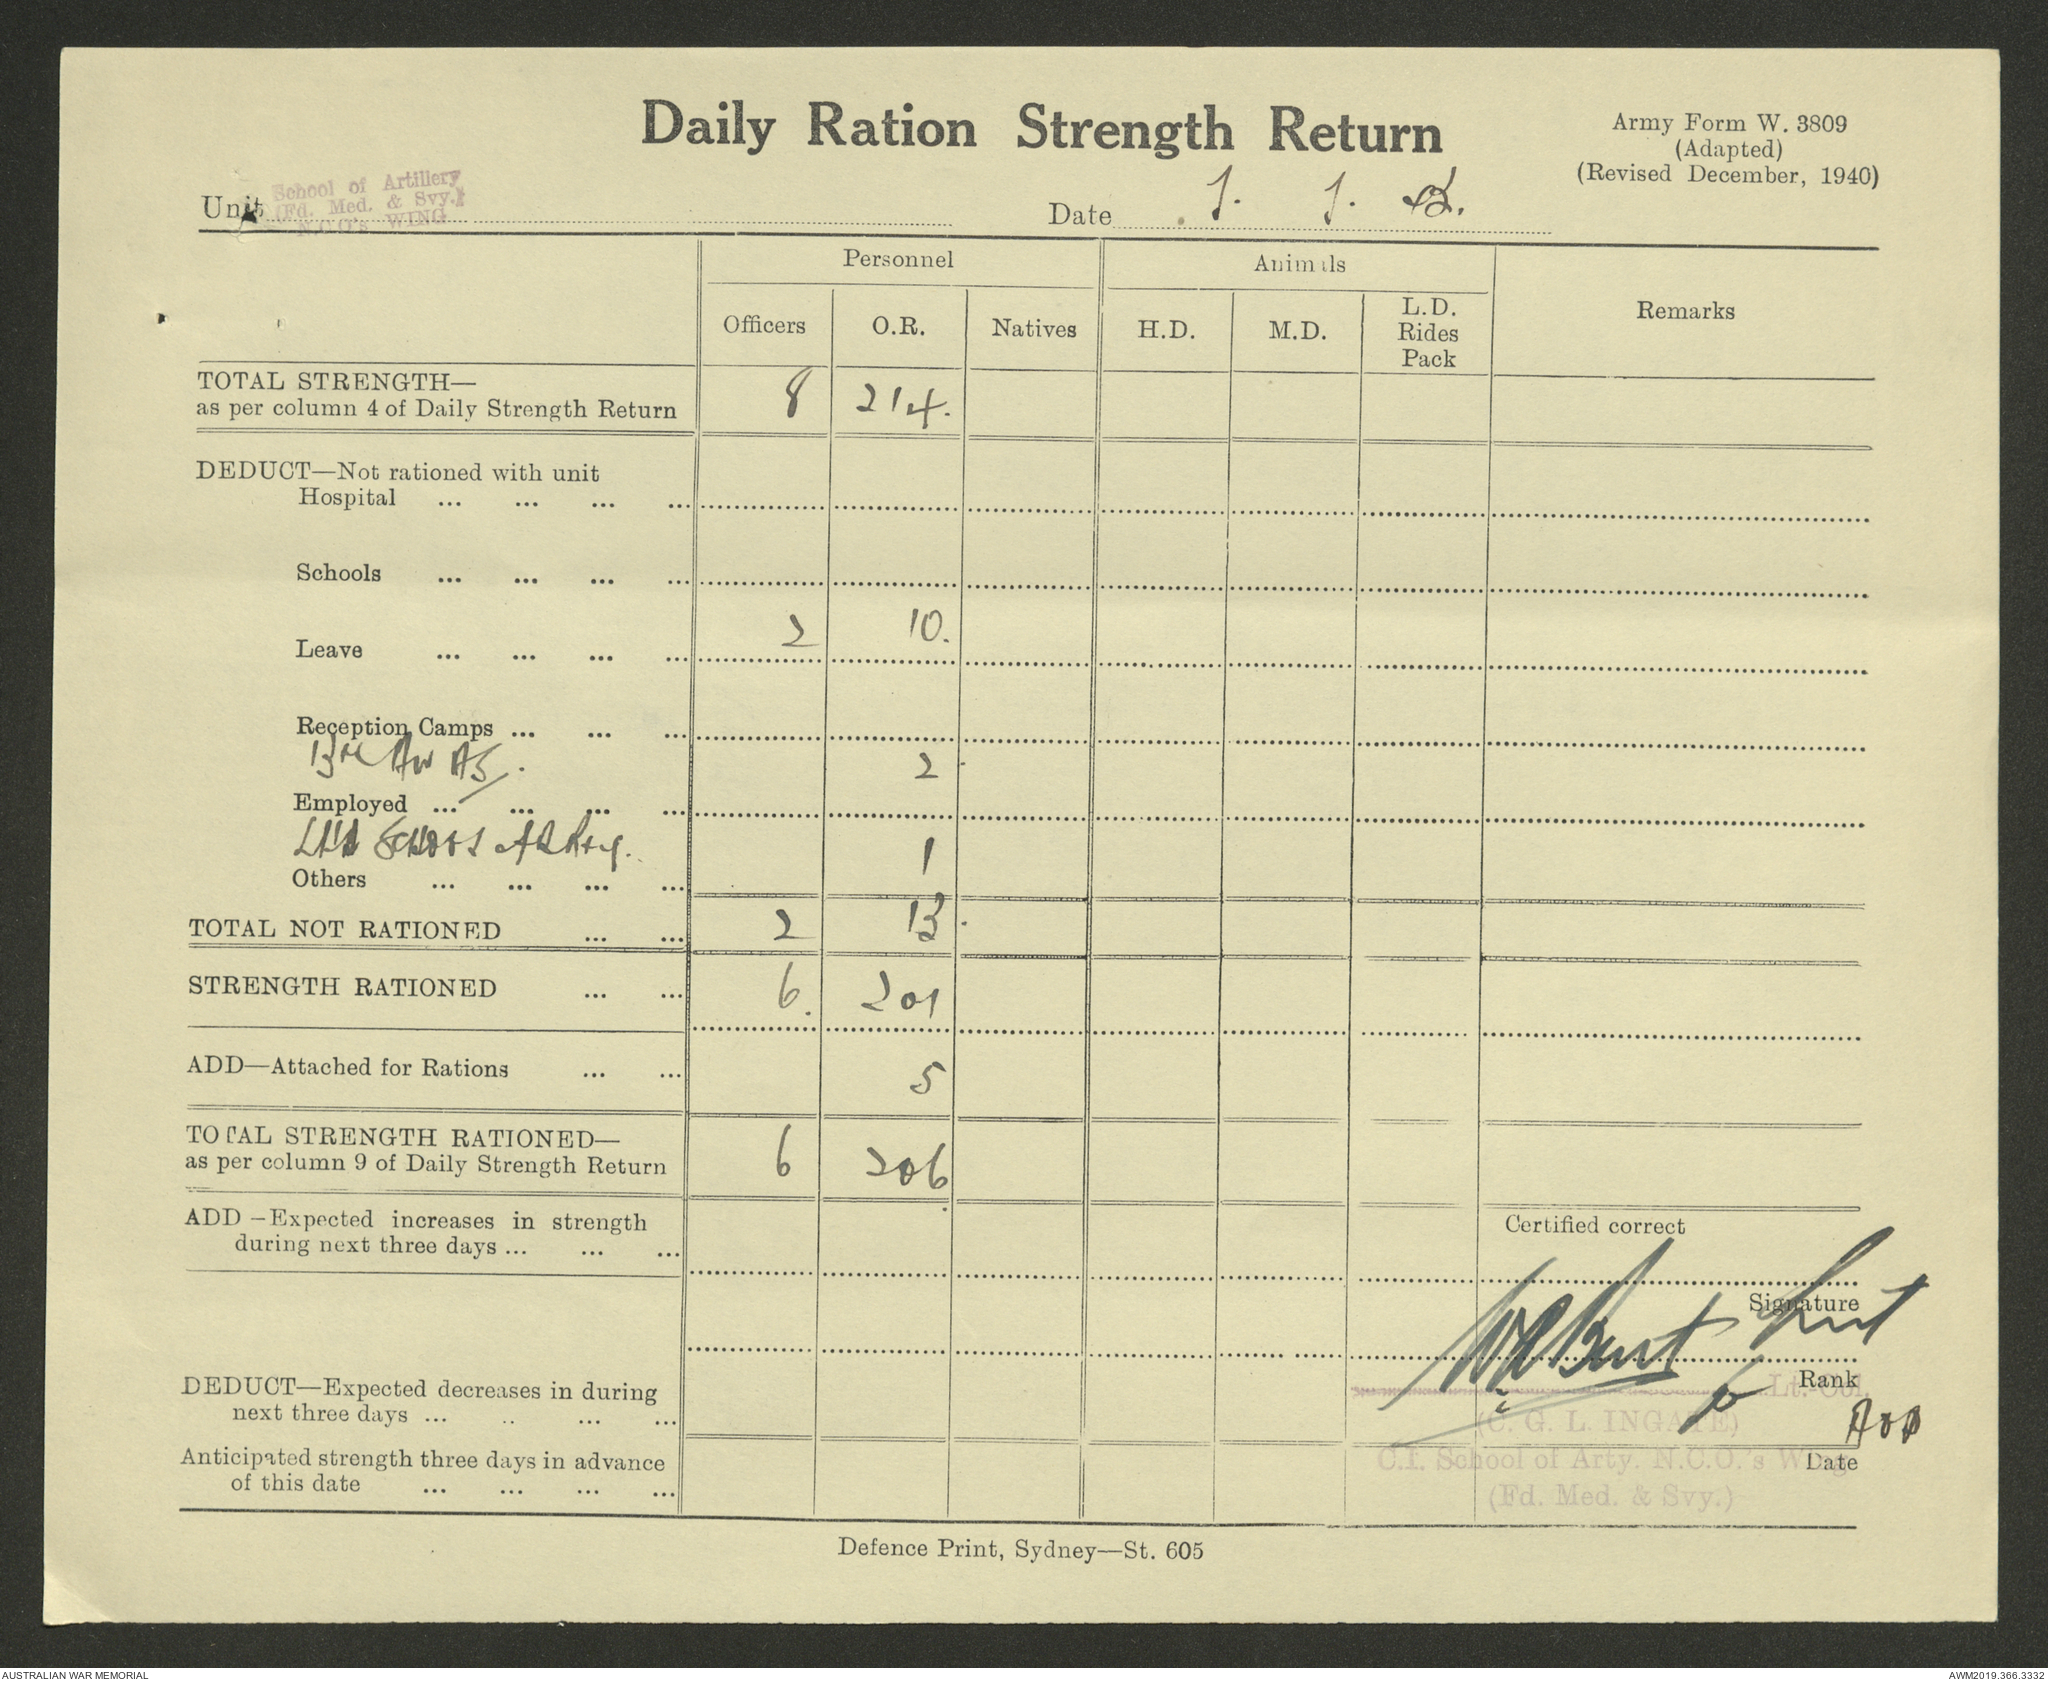 Daily Ration Strength Return
Army Form W. 3809
(Adapted)
(Revised December, 1940)
Unit
School of Artillery
(Fd. Med. & Svy.)
N.C.O's WING
Date
Personnel
Animals
Remarks
Officers O.R. Natives H.D. M.D. L.D.
Rides
Pack
TOTAL STRENGTH—
as per column 4 of Daily Strength Return 8 214.
DEDUCT—Not rationed with unit
Hospital ... ... ... ...
Schools ... ... ... ...
Leave ... ... ... ... 2 10.
Reception Camps ... ... ...
2
Employed ... ... ... ...
School 1
Others ... ... ... ...
TOTAL NOT RATIONED ... ... 2 13
STRENGTH RATIONED ... ... 6. 201
ADD—Attached for Rations ... ... 5
TOTAL STRENGTH RATIONED—
as per column 9 of Daily Strength Return 6 206
ADD—Expected increases in strength
during next three days ... ... ...
Certified correct
Signature
Rank
Lt.-Col.
DEDUCT—Expected decreases in during
next three days ... .. ... ...
(C. G. L. INGATE)
C.I. School of Arty. N.C.O.'s Wing
(Fd. Med. & Svy.)
Date
Anticipated strength three days in advance
of this date ... ... ... ...
Defence Print, Sydney—St. 605
AUSTRALIAN WAR MEMORIAL
AWM2019.366.3332